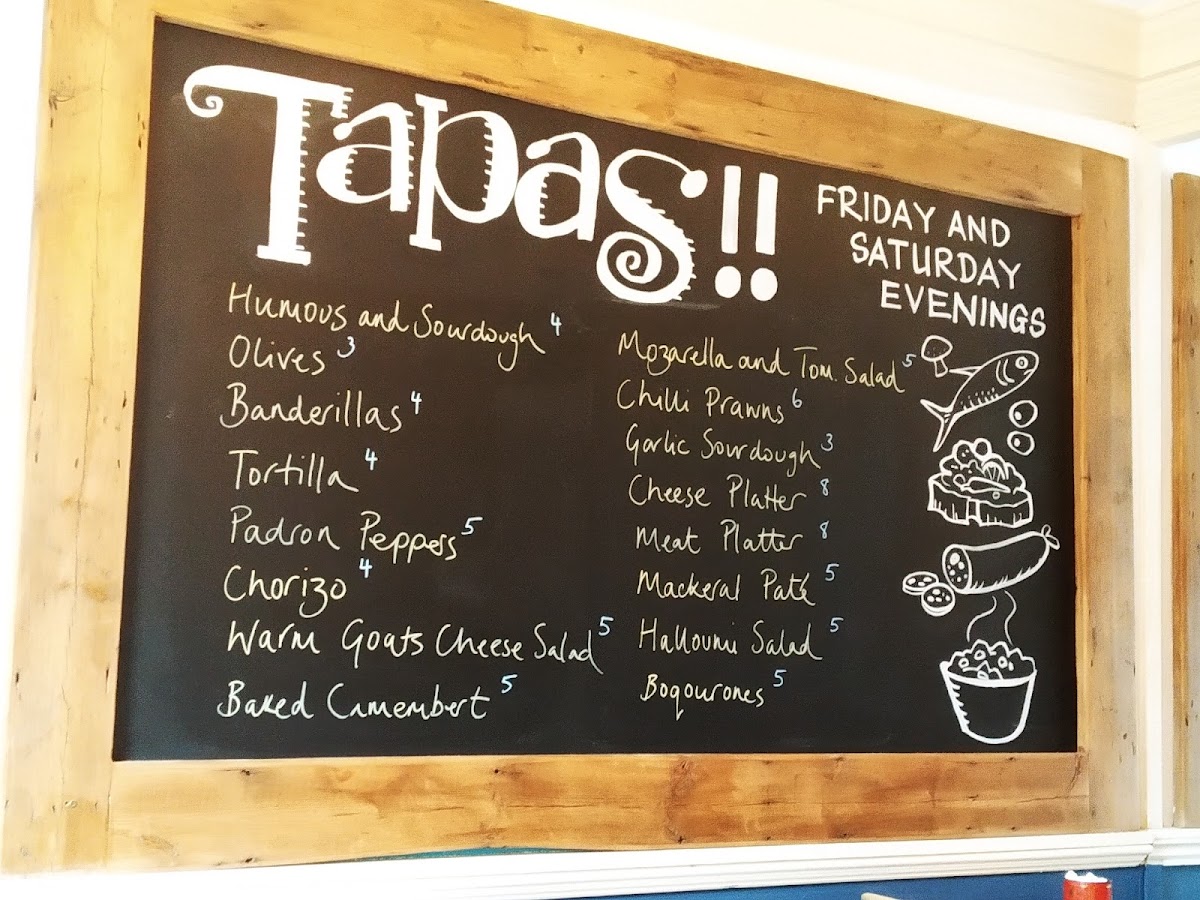 Tapas!!
FRIDAY AND
SATURDAY
EVENINGS
Humous and Sourdough 4
Olives 3
Banderillas 4
Tortilla 4
Padron Peppers 5
Chorizo 4
Warm Goats Cheese Salad 5
Baked Camembert 5
Mozarella and Tom. Salad 5
Chilli Prawns 6
Garlic Sourdough 3
Cheese Platter 8
Meat Platter 8
Mackeral Paté 5
Halloumi Salad 5
Boqourones 5